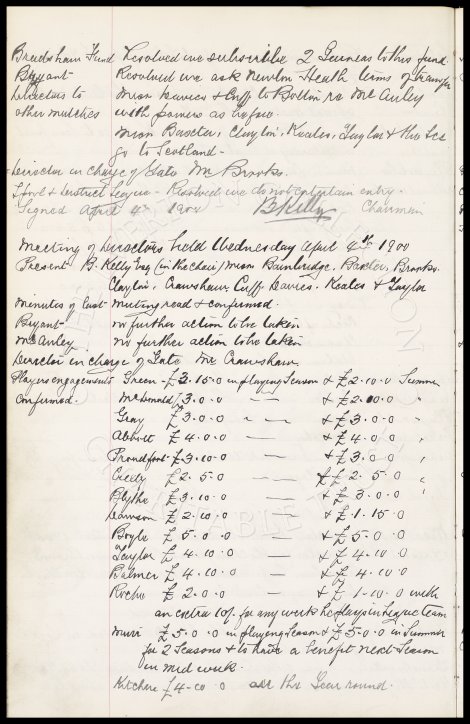 Breedsham Fund Resolved we subscribe 2 Guineas to this fund.
Bryant- Resolved we ask Newton Heath terms of transfer
Directors to Messrs Davies & Cuff to Bolton re McAuley
other matches with powers as before
Messrs Baxter, Clayton, Keates, Taylor & the Sec
go to Scotland-
Director in charge of Gate Mr Brooks.
L'pool & District League - Resolved we do not entertain entry.
Signed April 4th 1900 B Kelly Chairman
Meeting of Directors held Wednesday April 4th 1900
Present B. Kelly Esq (in the chair) Messrs Bainbridge, Baxter, Brooks.
Clayton, Crawshaw, Cuff, Davies, Keates & Taylor
Minutes of last meeting read & confirmed.
Bryant- no further action to be taken
McAuley. no further action to be taken
Director in charge of Gate Mr Crawshaw.
Players engagements Green - £3.15.0 in playing Season & £2.10.0 Summer
Confirmed. McDonald £3.0.0 — & £2.10.0 "
Gray £3.0.0 " — & £3.0.0 "
Abbott £4.0.0 — & £4.0.0 "
Proudfoot £3.10.0 — & £3.0.0 "
Eccles £2.5.0 — & £2.5.0 "
Blythe £3.10.0 — & £3.0.0 "
Dawson £2.10.0 — & £1.15.0
Boyle £5.0.0 — & £5.0.0
Taylor £4.10.0 — & £4.10.0
Balmer £4.10.0 — & £4.10.0
Roche £2.0.0 — & £1.10.0 with
an extra 10/- for any week he plays in League team
Muir £5.0.0 in playing Season & £5.0.0 in Summer
for 2 Seasons & to have a benefit next Season
in mid week.
Kitchen £4.0.0 all the Year round.